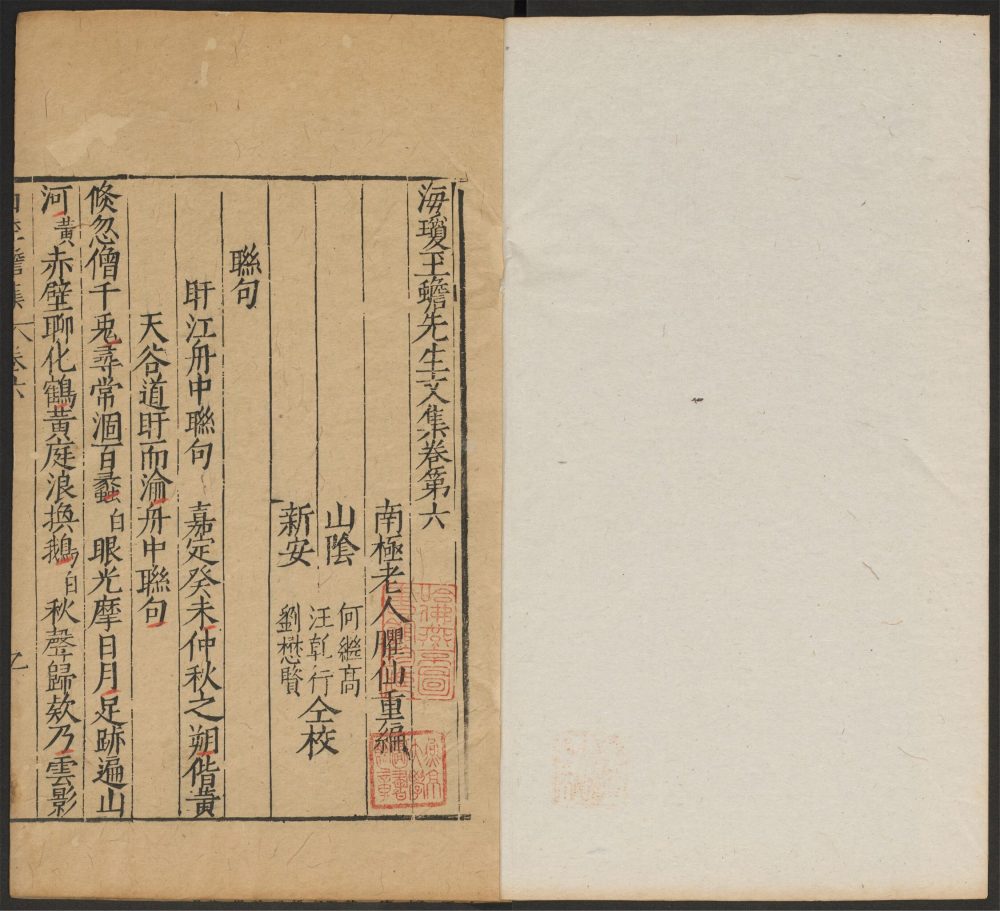 海瓊玉蟾先生文集卷第六
南極老人臞仙重編
山陰 何繼高
汪乾行 仝校
新安 劉懋賢
聯句
盱江舟中聯句 嘉定癸未仲秋之朔偕黄
天谷道盱而瀹舟中聯句
倐忽僧千兎尋常涸百蠡白眼光摩日月足跡遍山
河黄赤壁聊化鶴黄庭浪換鵝白秋聲歸欸乃雲影
集 卷六